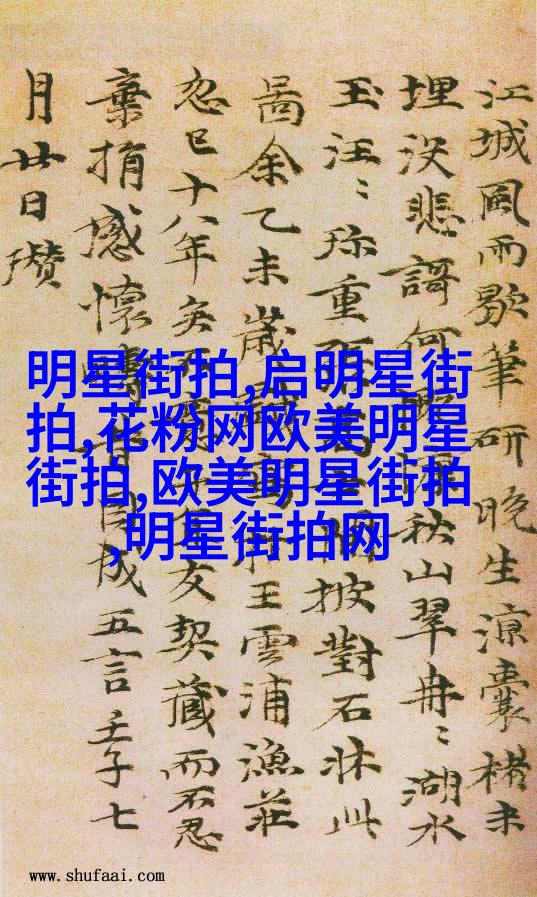 江城風雨歇筆研晚生涼囊楮未
埋沒悲謌何慷秋山翠冉〻湖水
玉汪〻珎重張披對石牀此
啚余乙未歲於王雲浦漁莊
忽已十八年矣友契藏而不忍
棄捐感懷成五言壬子七
月廿日瓚
明星街拍,启明星街
拍,花粉网欧美明星
街拍,欧美明星街拍
,明星街拍网
www.shufaai.com